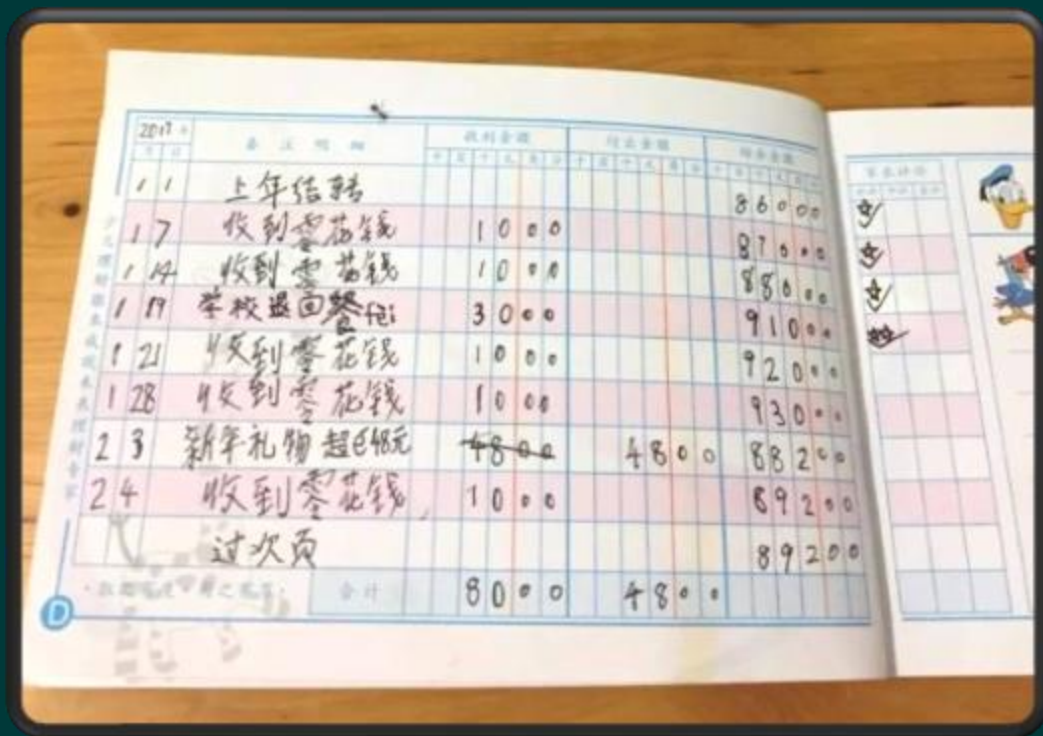 2017 年
月 日 备注明细 收到金额 付出金额 结余金额
十 百 十 元 角 分 十 百 十 元 角 分 十 百 十 元 角 分
1 1 上年结转 86000
1 7 收到零花钱 1000 87000
1 14 收到零花钱 1000 88000
1 19 学校退回餐fei 3000 91000
1 21 收到零花钱 1000 92000
1 28 收到零花钱 1000 93000
2 3 新年礼物 超e48元 4800 4800 88200
2 4 收到零花钱 1000 89200
过次页 89200
合计 8000 4800
D